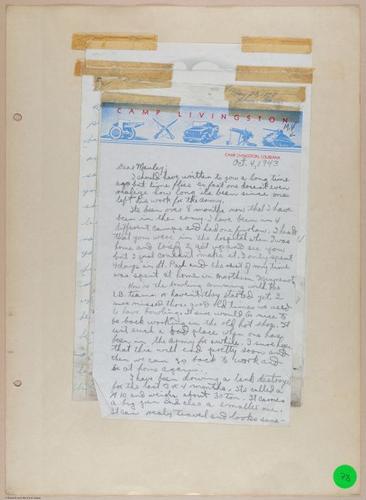 CAMP LIVINGSTON
CAMP LIVINGSTON, LOUISIANA
Oct. 4, 1943
Dear Manley:
I should have written to you a long time
ago but time flies so fast one doesn't even
realize how long its been since one
left his work for the army.
Its been over 8 months now that I have
been in the army. I have been in 4
different camps and had one furlow. I heard
that you were in the hospital when I was
home and tried to get up and see you
but I just couldn't make it. I only spent
4 days in St. Paul and the rest of my time
was spent at home in northern Minnesota.
How is the bowling comming with the
I.B. team or haven't they started yet. I
sure missed those good old times we used
to have bowling. It sure would be nice to
be back working in the old hot shop. It
isn't such a bad place when one has
been in the army for awhile. I sure hope
that this will end pretty soon and
then we can go back to work and
be at home again.
I have been driving a tank destroyer
for the last 3 or 4 months. Its called a
M 10 and weighs about 30 ton. It carries
a big gun and also a smaller one.
It can realy travel and looks some-
78